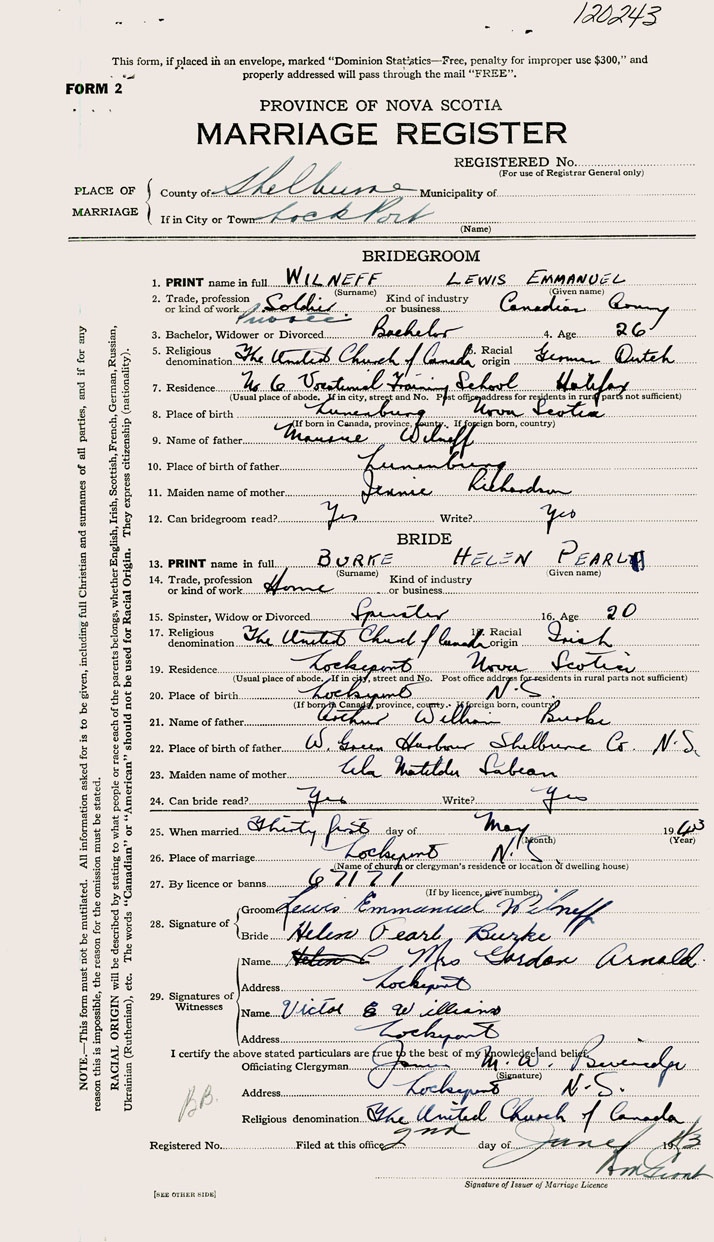 120243
This form, if placed in an envelope, marked “Dominion Statistics—Free, penalty for improper use $300,” and
properly addressed will pass through the mail “FREE”.
FORM 2
PROVINCE OF NOVA SCOTIA
MARRIAGE REGISTER
REGISTERED No.
(For use of Registrar General only)
PLACE OF MARRIAGE
County of Shelburne Municipality of
If in City or Town Lock Port
(Name)
BRIDEGROOM
1. PRINT name in full WILNEFF LEWIS EMMANUEL
(Surname) (Given name)
2. Trade, profession or kind of work Soldier Private Kind of industry or business Canadian Army
3. Bachelor, Widower or Divorced Bachelor 4. Age 26
5. Religious denomination The United Church of Canada 6. Racial origin German Dutch
7. Residence No 6 Vocational Training School Halifax
(Usual place of abode. If in city, street and No. Post office address for residents in rural parts not sufficient)
8. Place of birth Lunenburg Nova Scotia
(If born in Canada, province, county. If foreign born, country)
9. Name of father Wilneff
10. Place of birth of father Lunenburg
11. Maiden name of mother Jennie Richardson
12. Can bridegroom read? Yes Write? Yes
BRIDE
13. PRINT name in full BURKE HELEN PEARL
(Surname) (Given name)
14. Trade, profession or kind of work Home Kind of industry or business
15. Spinster, Widow or Divorced Spinster 16. Age 20
17. Religious denomination The United Church of Canada 18. Racial origin Irish
19. Residence Lockeport Nova Scotia
(Usual place of abode. If in city, street and No. Post office address for residents in rural parts not sufficient)
20. Place of birth Lockeport N.S.
(If born in Canada, province, county. If foreign born, country)
21. Name of father Arthur William Burke
22. Place of birth of father W. Green Harbour Shelburne Co. N.S.
23. Maiden name of mother Matilda Sabean
24. Can bride read? Yes Write? Yes
25. When married Thirty first day of May 1943
(Month) (Year)
26. Place of marriage Lockeport N.S.
(Name of church or clergyman's residence or location of dwelling house)
27. By licence or banns 67171
(If by licence, give number)
28. Signature of
Groom Lewis Emmanuel Wilneff
Bride Helen Pearl Burke
29. Signatures of Witnesses
Name Mrs Gordon Arnold
Address Lockeport
Name Victor E Williams
Address Lockeport
I certify the above stated particulars are true to the best of my knowledge and belief.
Officiating Clergyman James M. W.
(Signature)
Address Lockeport N.S.
B.B.
Religious denomination The United Church of Canada
Registered No. Filed at this office 2nd day of June 1943
Signature of Issuer of Marriage Licence
[SEE OTHER SIDE]
NOTE.—This form must not be mutilated. All information asked for is to be given, including full Christian and surnames of all parties, and if for any
reason this is impossible, the reason for the omission must be stated.
RACIAL ORIGIN will be described by stating to what people or race each of the parents belongs, whether English, Irish, Scottish, French, German, Russian,
Ukrainian (Ruthenian), etc. The words “Canadian” or “American” should not be used for Racial Origin. They express citizenship (nationality).